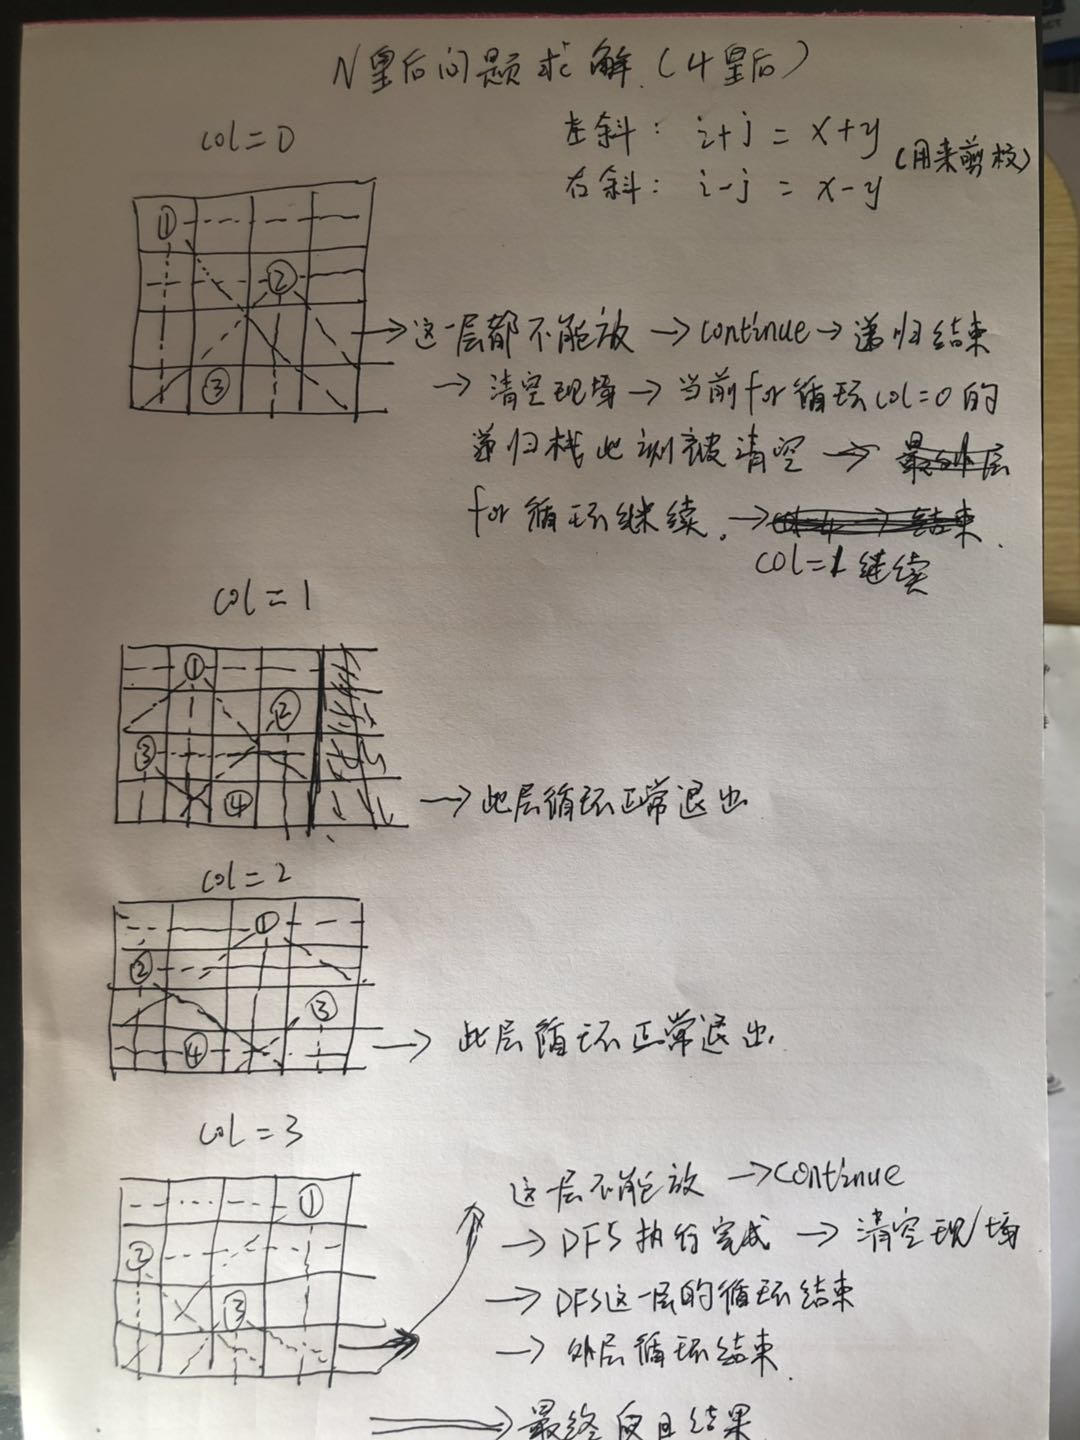 N皇后问题求解(4皇后)
左斜: i+j = x+y
(用来剪枝)
右斜: i-j = x-y
col=0
①
②
③
→这一层都不能放→continue→递归结束
→清空现场→当前for循环col=0的
递归栈此刻被清空→最外层
for循环继续.→
col=1继续
col=1
①
②
③
④
→此层循环正常退出
col=2
①
②
③
④
→此层循环正常退出.
col=3
①
②
③
这层不能放→continue
→DFS执行完成→清空现场
→DFS这一层的循环结束
→外层循环结束.
→最终返回结果